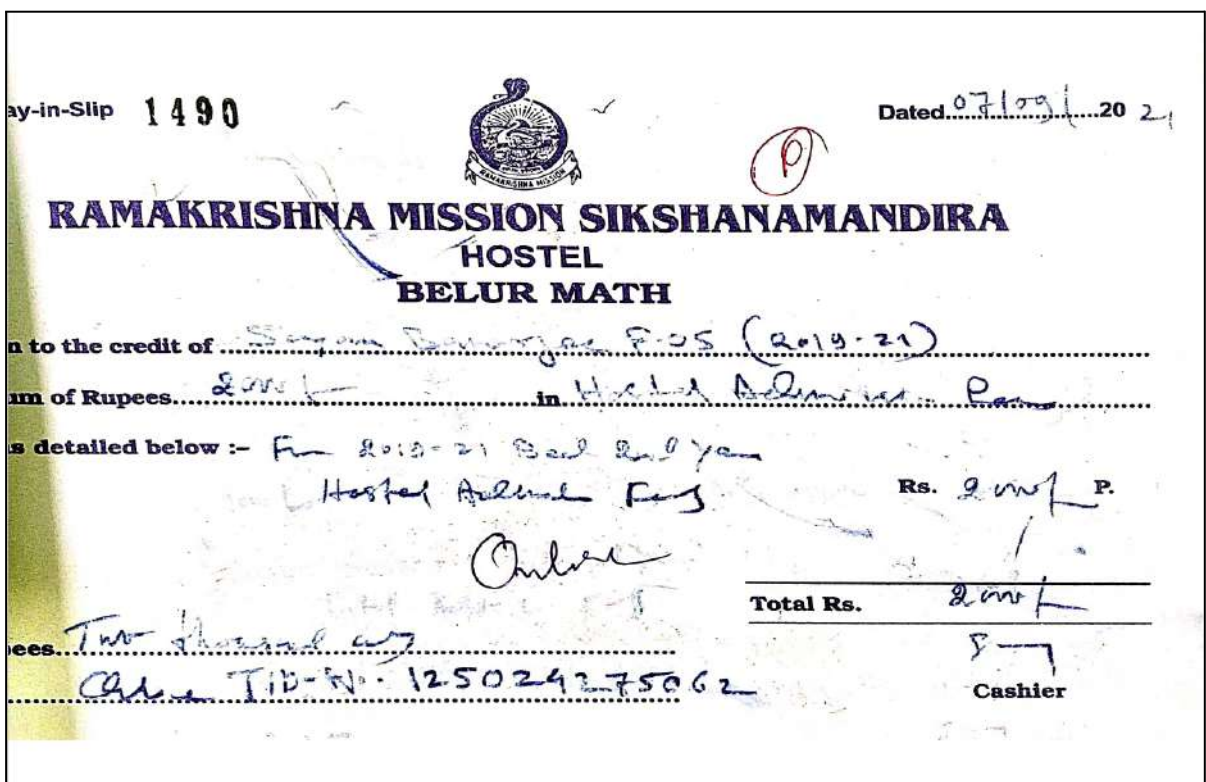 ay-in-Slip 1490
Dated 07/09/ 20 21
RAMAKRISHNA MISSION
P
RAMAKRISHNA MISSION SIKSHANAMANDIRA
HOSTEL
BELUR MATH
n to the credit of Sayan Banerjee F-05 (2019-21)
um of Rupees 2000/- in Hostel
s detailed below :- For 2019-21 Bed 2nd year
Hostel Fees
Rs. 2000/- P.
Online
Total Rs. 2000/-
ees Two thousand only
Online TID-No. 125024275062
Cashier